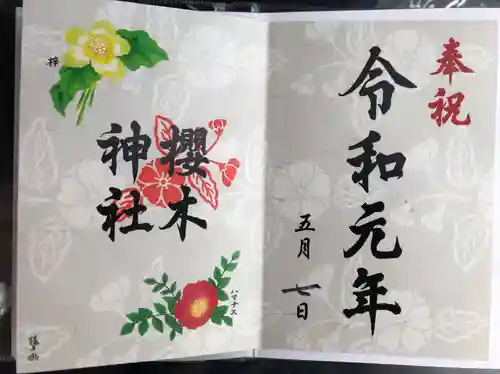 奉祝
令和元年
五月 七日
櫻木
神社
梓
ハマナス